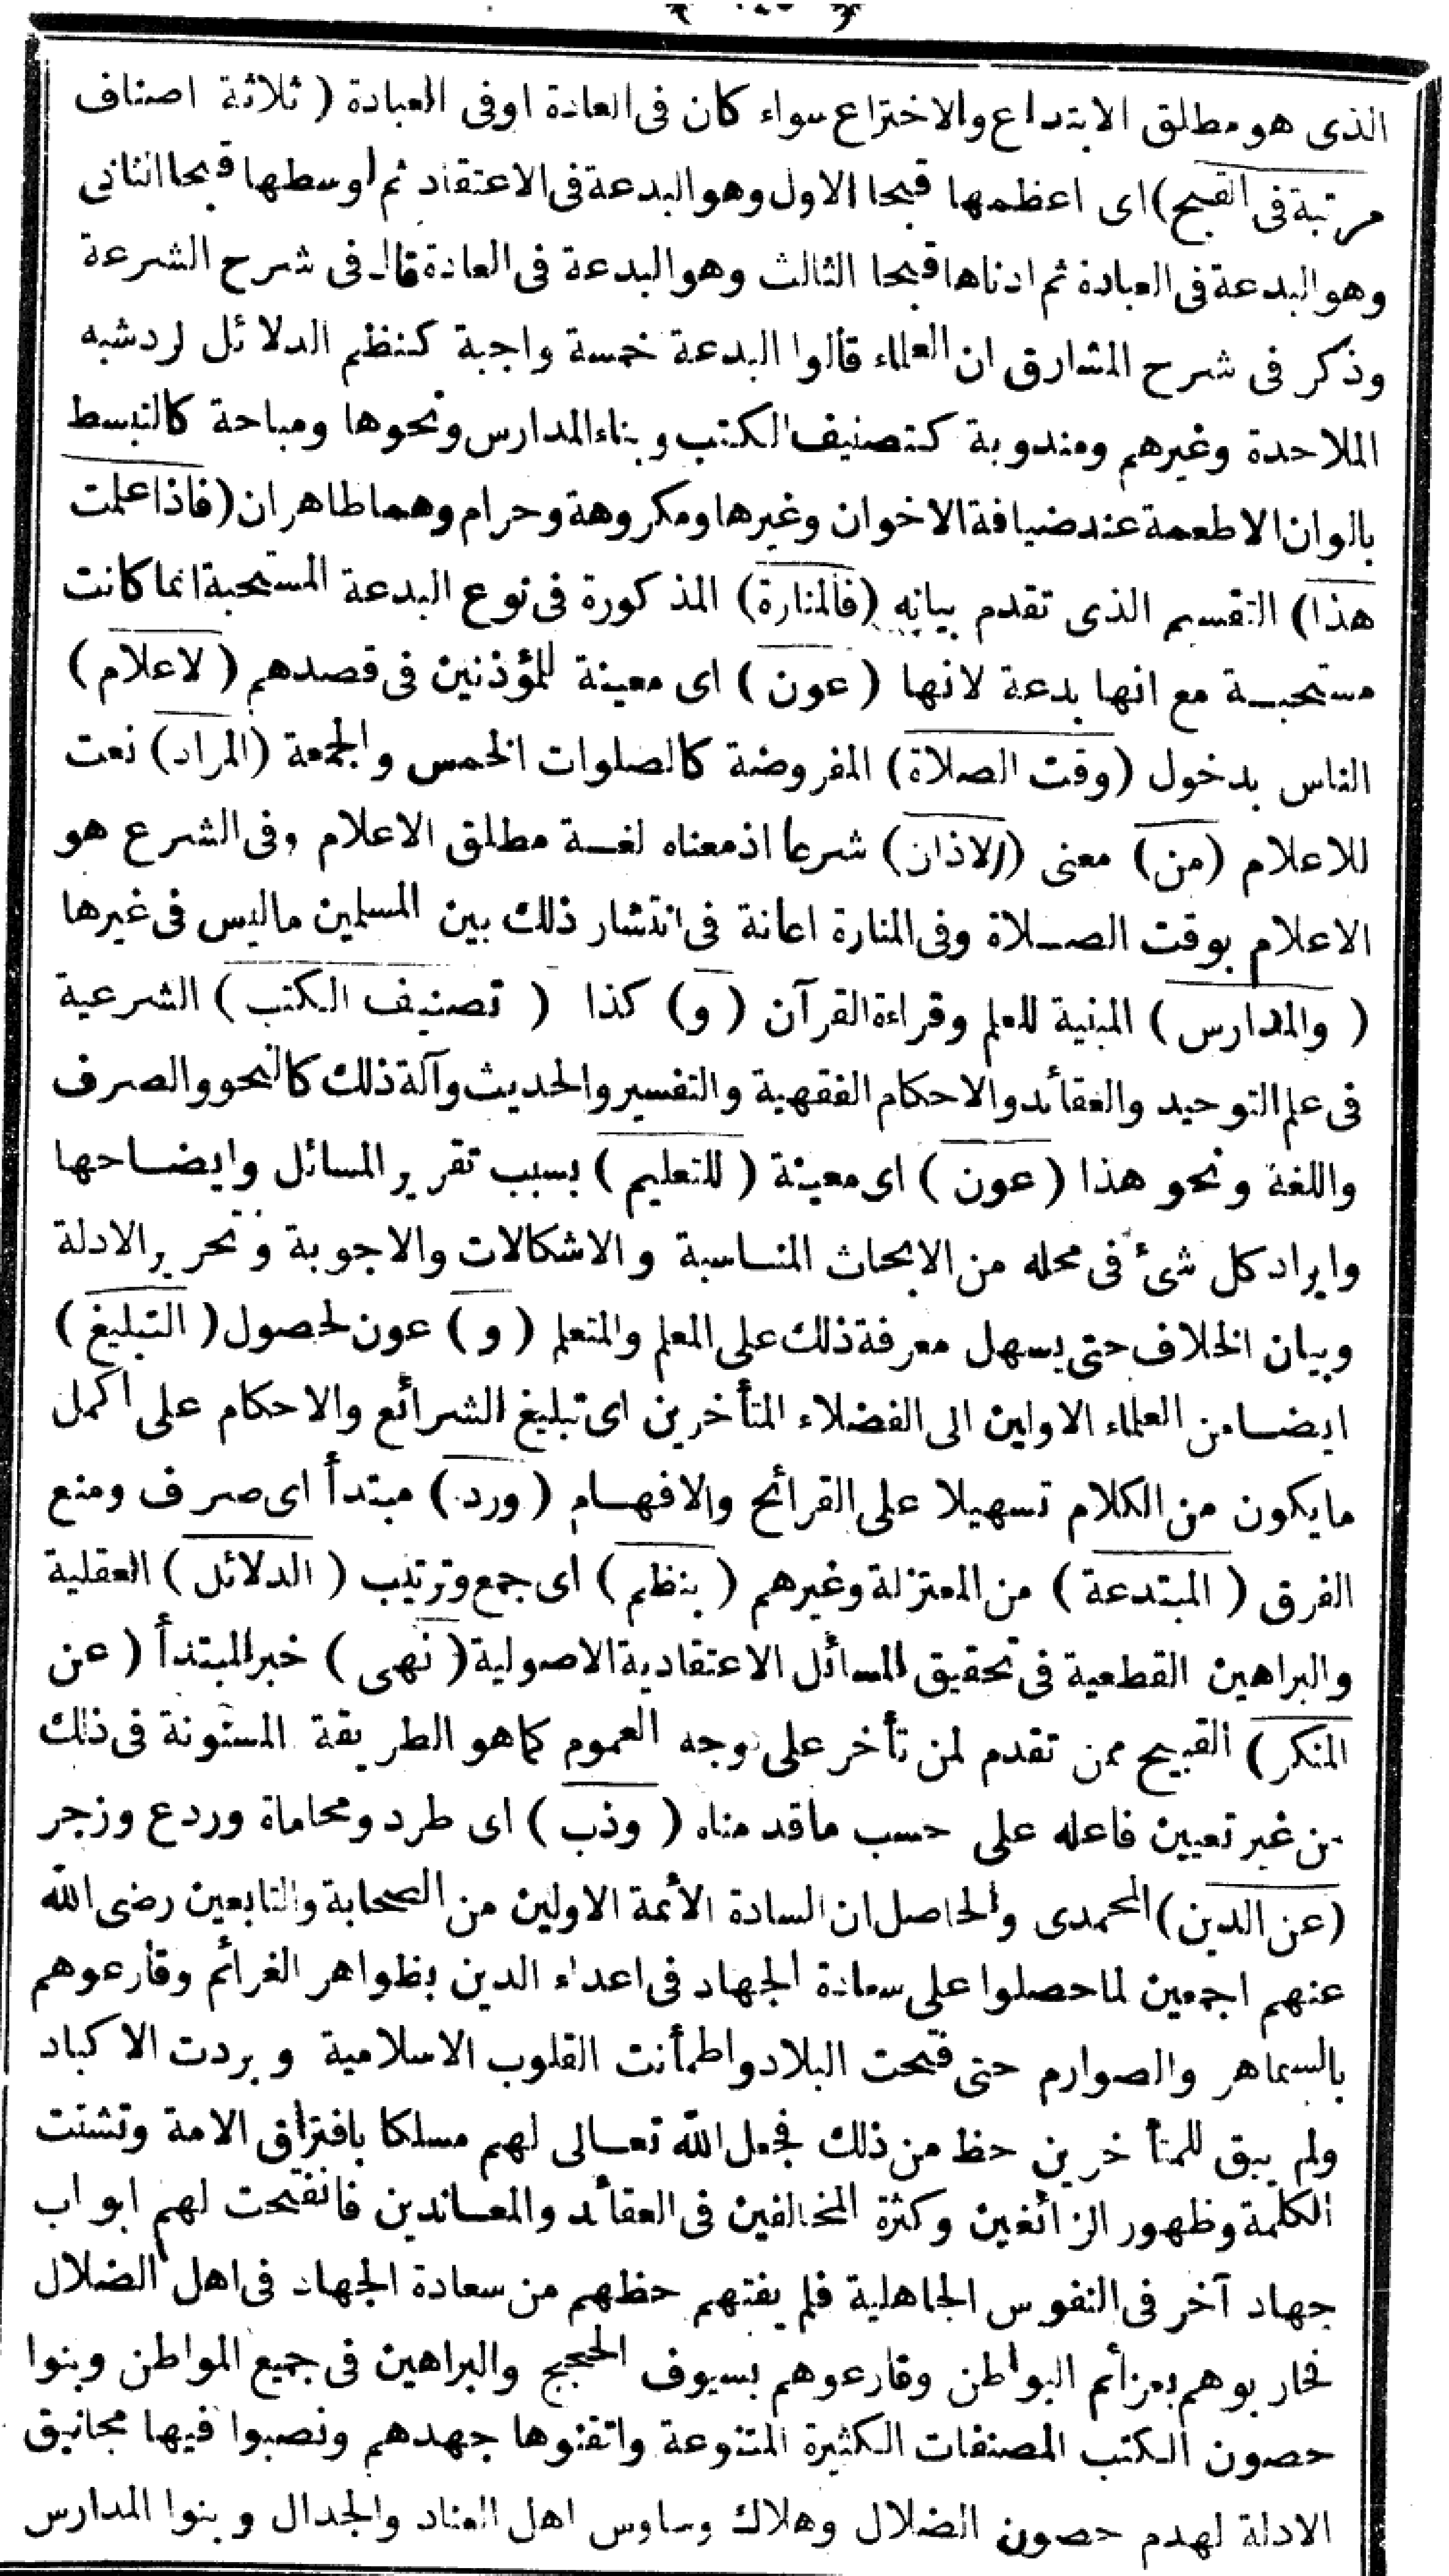 الذى هو مطلق الابتداع والاختراع سواء كان فى العادة اوفى العبادة ( ثلاثة اصناف
مرتبة فى القبح) اى اعظمها قبحا الاول وهو البدعة فى الاعتقاد ثم اوسطها قبحا الثانى
وهو البدعة فى العبادة ثم ادناها قبحا الثالث وهو البدعة فى العادة قال فى شرح الشرعة
وذكر فى شرح المشارق ان العلماء قالوا البدعة خمسة واجبة كنظم الدلائل لرد شبه
الملاحدة وغيرهم ومندوبة كتصنيف الكتب وبناء المدارس ونحوها ومباحة كالتبسط
بالوان الاطعمة عند ضيافة الاخوان وغيرها ومكروهة وحرام وهما ظاهران (فاذا علمت
هذا) التقسيم الذى تقدم بيانه (فالمنارة) المذكورة فى نوع البدعة المستحبة انما كانت
مستحبة مع انها بدعة لانها (عون) اى معينة للمؤذنين فى قصدهم (لاعلام)
الناس بدخول (وقت الصلاة) المفروضة كالصلوات الخمس والجمعة (المراد) نعت
للاعلام (من) معنى (الاذان) شرعا اذ معناه لغة مطلق الاعلام وفى الشرع هو
الاعلام بوقت الصلاة وفى المنارة اعانة فى انتشار ذلك بين المسلمين ماليس فى غيرها
( والمدارس ) المبنية للعلم وقراءة القرآن (و) كذا ( تصنيف الكتب ) الشرعية
فى علم التوحيد والعقائد والاحكام الفقهية والتفسير والحديث وآلة ذلك كالنحو والصرف
واللغة ونحو هذا (عون) اى معينة (للتعليم) بسبب تقرير المسائل وايضاحها
وايراد كل شئ فى محله من الابحاث المناسبة والاشكالات والاجوبة وتحرير الادلة
وبيان الخلاف حتى يسهل معرفة ذلك على المعلم والمتعلم (و) عون لحصول (التبليغ)
ايضا من العلماء الاولين الى الفضلاء المتأخرين اى تبليغ الشرائع والاحكام على اكمل
مايكون من الكلام تسهيلا على القرائح والافهام (ورد) مبتدأ اى صرف ومنع
الفرق (المبتدعة) من المعتزلة وغيرهم (بنظم) اى جمع وترتيب (الدلائل) العقلية
والبراهين القطعية فى تحقيق المسائل الاعتقادية الاصولية (نهى) خبر المبتدأ (عن
المنكر) القبيح ممن تقدم لمن تأخر على وجه العموم كما هو الطريقة المسنونة فى ذلك
من غير تعيين فاعله على حسب ماقدمناه (وذب) اى طرد ومحاماة وردع وزجر
(عن الدين) المحمدى والحاصل ان السادة الأئمة الاولين من الصحابة والتابعين رضى الله
عنهم اجمعين لما حصلوا على سعادة الجهاد فى اعداء الدين بظواهر الغرائم وقارعوهم
بالسماهر والصوارم حتى فتحت البلاد واطمأنت القلوب الاسلامية وبردت الاكباد
ولم يبق للمتأخرين حظ من ذلك فجعل الله تعالى لهم مسلكا بافتراق الامة وتشتت
الكلمة وظهور الزائغين وكثرة المخالفين فى العقائد والمعاندين فانفتحت لهم ابواب
جهاد آخر فى النفوس الجاهلية فلم يفتهم حظهم من سعادة الجهاد فى اهل الضلال
فحاربوهم بعزائم البواطن وقارعوهم بسيوف الحجج والبراهين فى جميع المواطن وبنوا
حصون الكتب المصنفات الكثيرة المتنوعة واتقنوها جهدهم ونصبوا فيها مجانيق
الادلة لهدم حصون الضلال وهلاك وساوس اهل العناد والجدال وبنوا المدارس